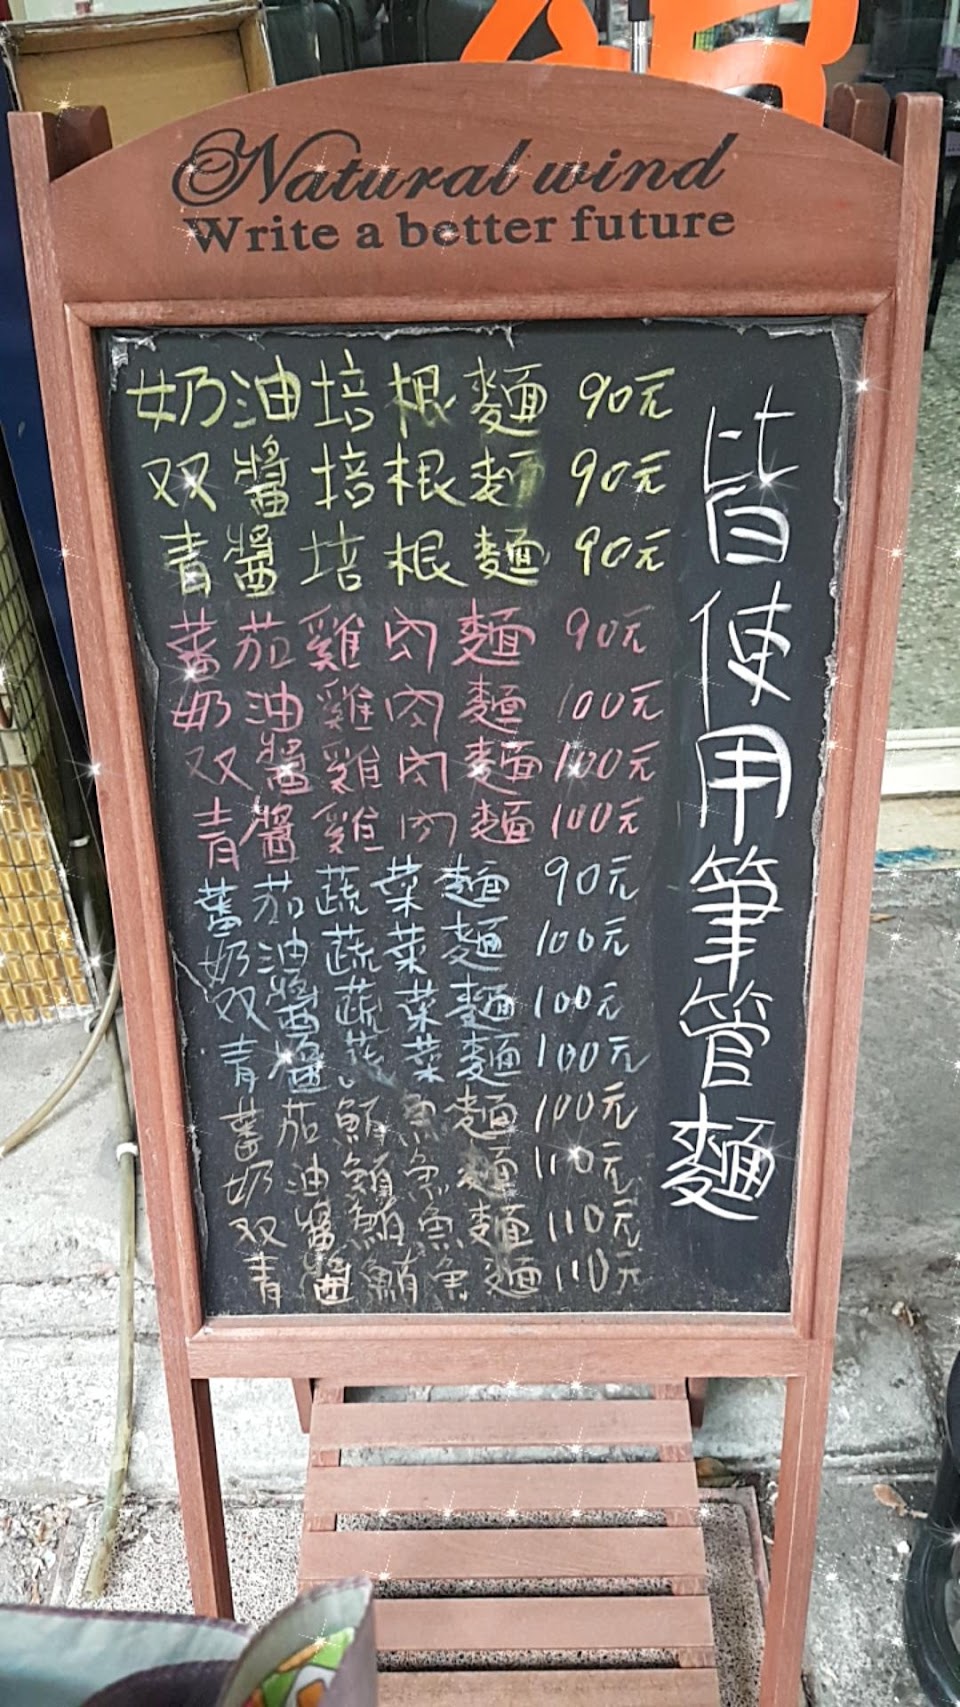 Natural wind
Write a better future
奶油培根麵 90元
双醬培根麵 90元
青醬培根麵 90元
蕃茄雞肉麵 90元
奶油雞肉麵 100元
双醬雞肉麵 100元
青醬雞肉麵 100元
蕃茄蔬菜麵 90元
奶油蔬菜麵 100元
双醬蔬菜麵 100元
青醬蔬菜麵 100元
蕃茄鮪魚麵 100元
奶油鮪魚麵 110元
双醬鮪魚麵 110元
青醬鮪魚麵 110元
皆使用筆管麵